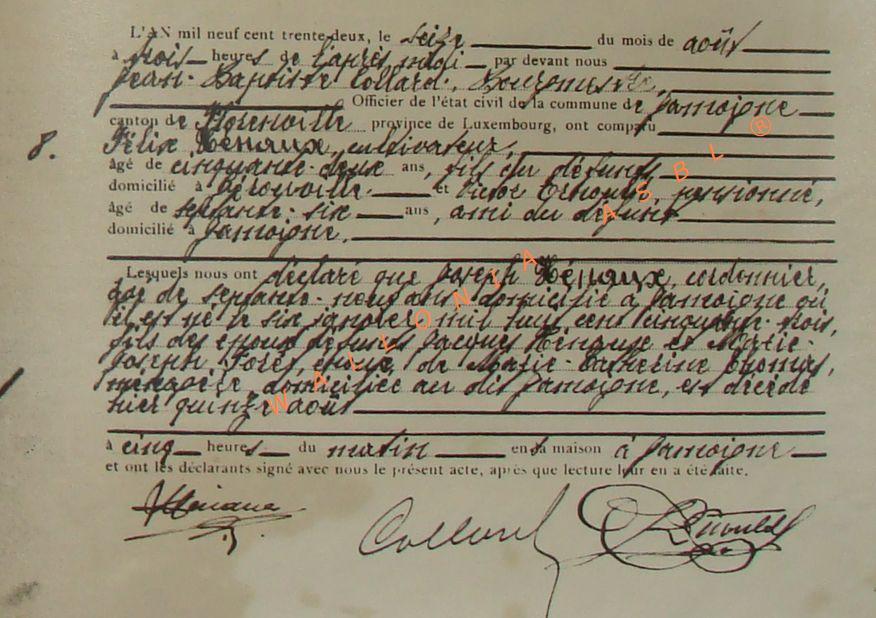 L'AN mil neuf cent trente-deux, le seize du mois de août
à trois heures de l'après midi par devant nous
Jean-Baptiste Collard, Bourgmestre,
Officier de l'état civil de la commune de Jamoigne
canton de Florenville province de Luxembourg, ont comparu
8. Félix Hénaux, cultivateur,
âgé de cinquante-deux ans, fils du défunt
domicilié à et Victor pensionné,
âgé de septante-six ans, ami du défunt
domicilié à Jamoigne.
Lesquels nous ont déclaré que Joseph Hénaux, cordonnier,
âgé de septante-neuf ans domicilié à Jamoigne où
il est né le six janvier mil huit cent cinquante-trois,
fils des époux défunts Jacques Hénaux et Marie-
Joseph époux de Marie-Catherine Thomas,
ménagère, domiciliée au dit Jamoigne, est décédé
hier quinze août
à cinq heures du matin en sa maison à Jamoigne
et ont les déclarants signé avec nous le présent acte, après que lecture leur en a été faite.
Hénaux
Collard
WALLONIA ASBL ®